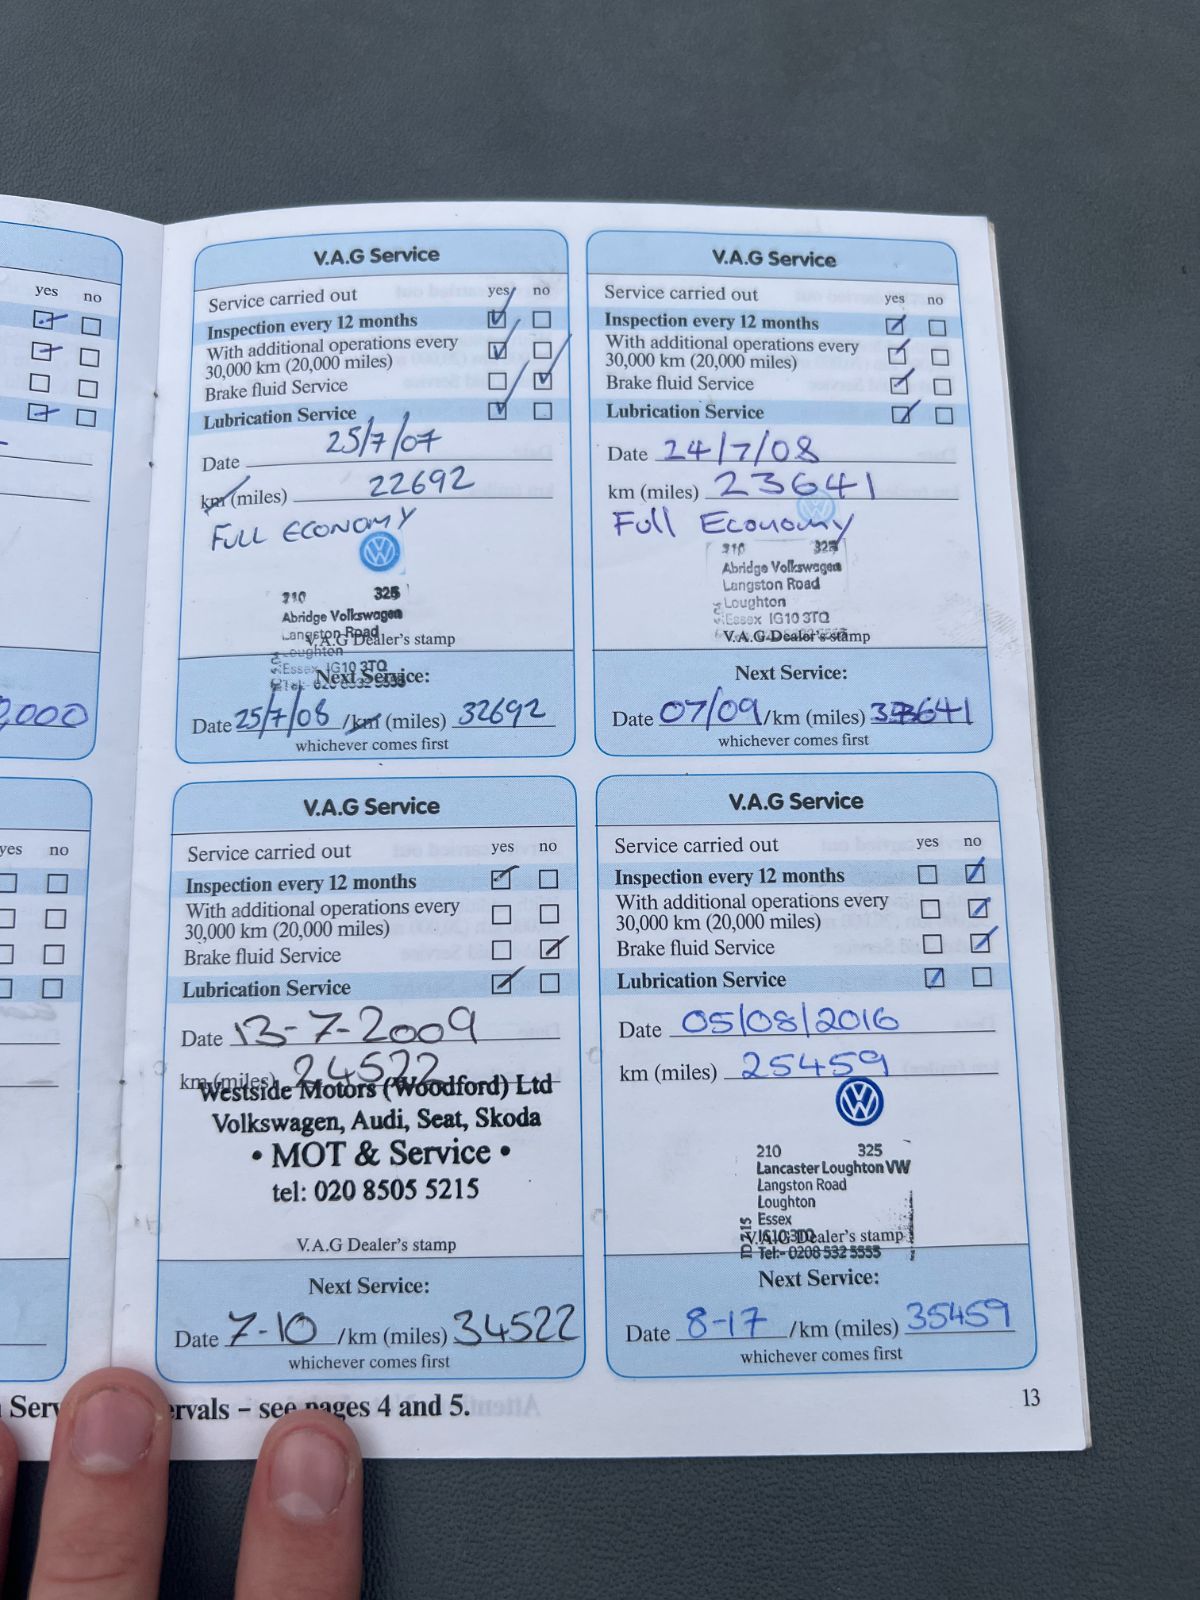 yes no
0,000
yes no
V.A.G Service
Service carried out yes no
Inspection every 12 months
With additional operations every
30,000 km (20,000 miles)
Brake fluid Service
Lubrication Service
Date 25/7/07
km (miles) 22692
FULL ECONOMY
210 325
Abridge Volkswagen
Langston Road
V.A.G Dealer's stamp
Loughton
Essex IG10 3TQ
Next Service:
Tel:- 020 8532 5555
Date 25/7/08 /km (miles) 32692
whichever comes first
V.A.G Service
Service carried out yes no
Inspection every 12 months
With additional operations every
30,000 km (20,000 miles)
Brake fluid Service
Lubrication Service
Date 24/7/08
km (miles) 23641
Full Economy
210 325
Abridge Volkswagen
Langston Road
Loughton
Essex IG10 3TQ
V.A.G Dealer's stamp
Next Service:
Date 07/09 /km (miles) 33641
whichever comes first
V.A.G Service
Service carried out yes no
Inspection every 12 months
With additional operations every
30,000 km (20,000 miles)
Brake fluid Service
Lubrication Service
Date 13-7-2009
km (miles) 24522
Westside Motors (Woodford) Ltd
Volkswagen, Audi, Seat, Skoda
• MOT & Service •
tel: 020 8505 5215
V.A.G Dealer's stamp
Next Service:
Date 7-10 /km (miles) 34522
whichever comes first
V.A.G Service
Service carried out yes no
Inspection every 12 months
With additional operations every
30,000 km (20,000 miles)
Brake fluid Service
Lubrication Service
Date 05/08/2016
km (miles) 25459
210 325
Lancaster Loughton VW
Langston Road
Loughton
Essex
IG10 3TQ
V.A.G Dealer's stamp
Tel:- 0208 532 5555
ID 715
Next Service:
Date 8-17 /km (miles) 35459
whichever comes first
Serv ervals – see pages 4 and 5.
13